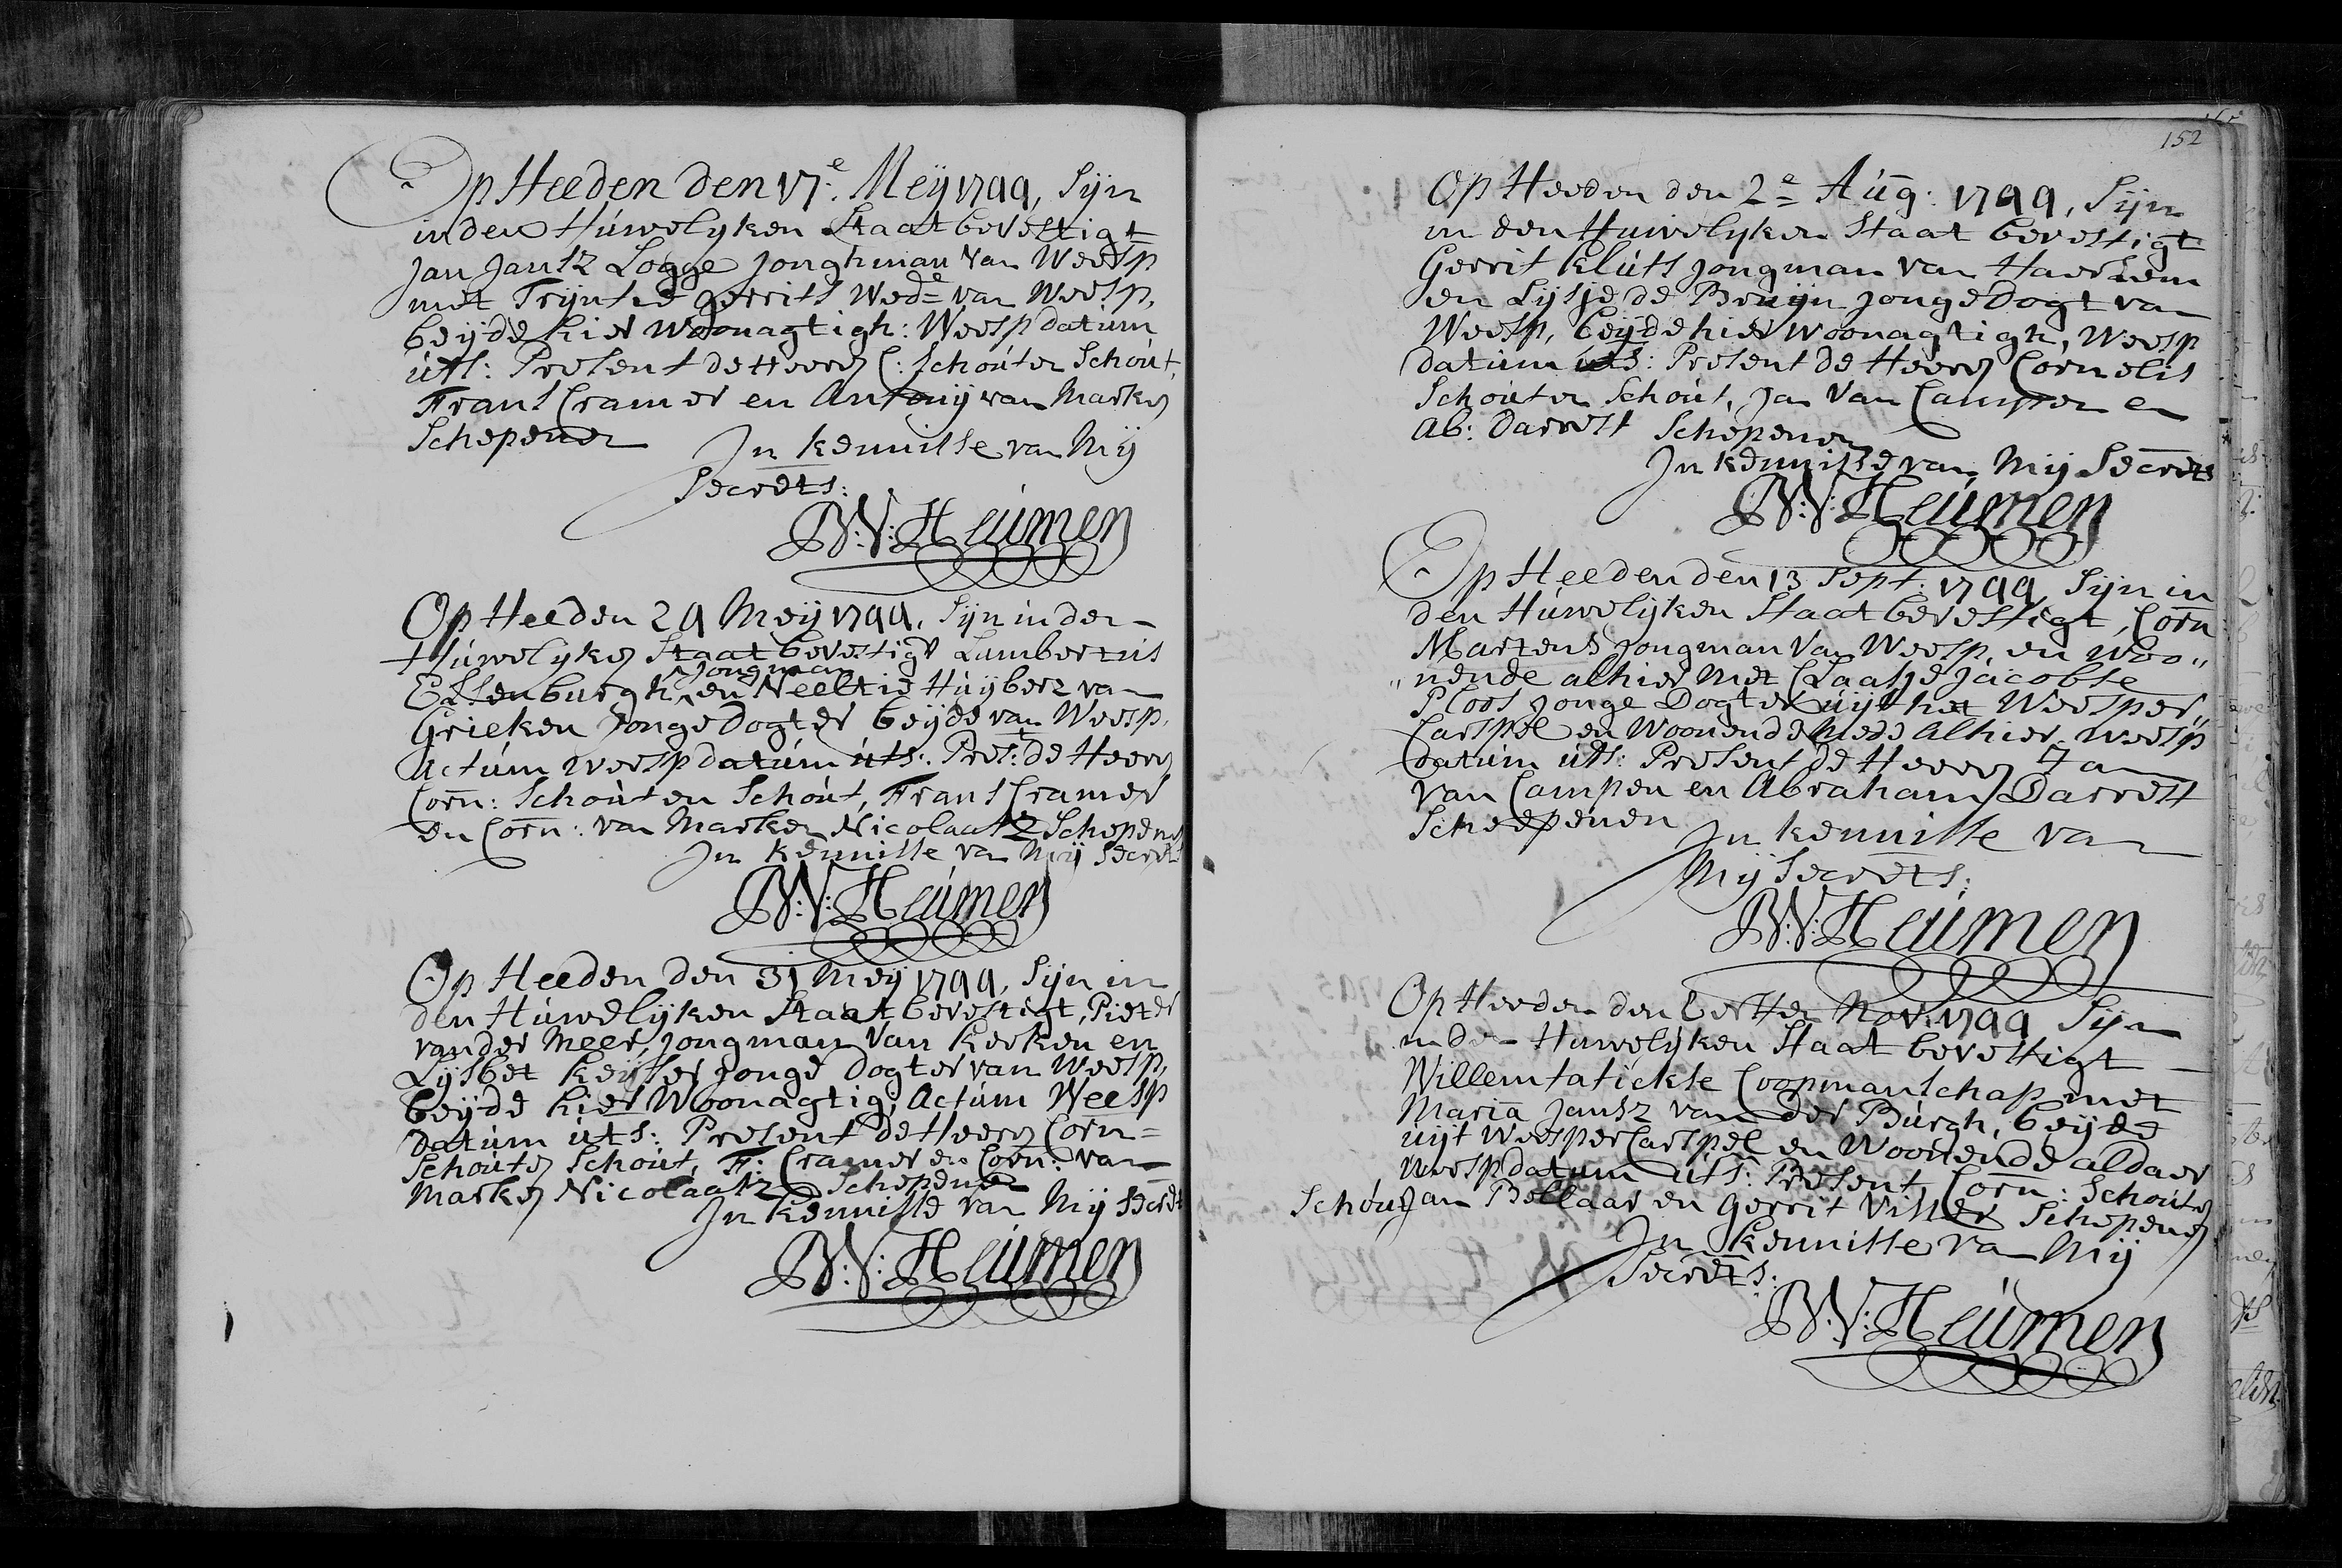 Op Heeden den 17e: Meij 1744, Sijn
in den Húwelyken Staat bevestigt
Jan Jansz Logge Jonghman van Weesp
met Trijntie Gerrits Wede van Weesp,
beijde hier woonagtigh: Weesp datúm
úts: Present de Heeren C: Schoúten Schoút,
Frans Cramer en Antonij van Marken
Schepenen
In kennisse van Mij
Secrets:
W:V:Heúmen
Op Heeden 29 Meij 1744, Sijn in den
Húwelyken Staat bevestigt Lambertús
Jongman
Essenburgh, en Neeltie Húijberz van
Grieken Jonge Dogter beijde van Weesp,
Actúm Weesp datúm úts: Pres: de Heeren
Corn: Schoúten Schoút, Frans Cramer
en Corn: van Marken Nicolaasz Schepenen
In kennisse van Mij Secrets
W:V:Heúmen
Op Heeden den 31 Meij 1744, Sijn in
den Húwelijken Staat bevestigt, Pieter
van der Meer, Jongman van Kerken en
Lijsbet Keijser Jonge Dogter van Weesp,
beijde hier Woonagtig, Actúm Weesp
datúm úts: Present de Heeren Corn=
Schoúten Schoút, F: Cramer en Corn: van
Marken Nicolaasz Schepenen
In kennisse van Mij Secrets
W:V:Heúmen
152
Op Heeden den 2e Aúg: 1744, Sijn
in den Huwelyken Staat bevestigt
Gerrit Klúts Jongman van Haerlem
en Lijsje de Bruijn Jonge Dogt van
Weesp, beijde hier woonagtigh, Weesp
datúm úts: Present de Heeren Cornelis
Schoúten Schoút, Jan van Campen en
Ab: Darrest Schepenen
In kennisse van Mij Secrets
W:V:Heúmen
Op Heeden den 13 Sept: 1744, Sijn in
den Húwelijken Staat bevestigt, Corn
Martens Jongman van Weesp en Woo„
„nende alhier met Claasje Jacobse
Ploos Jonge Dogter uijt het Weesper„
Carspel en Woonende mede Alhier, Weesp
datúm úts: Present de Heeren Jan
van Campen en Abraham Darrest
Scheepenen
In kennisse van
Mij Secrets:
W:V:Heúmen
Op Heeden den eersten Nov: 1744 Sijn
in den Huwelijken Staat bevestigt
Willem Coopmanschap met
Maria Jansz van der Búrgh, beijde
uijt Weespercarspel en Woonende aldaer
Weesp datum úts: Present Corn: Schoúten
Schoút Jan Bellaar en Gerrit Visser Schepenen
In kennisse van Mij
Secrets:
W:V:Heúmen